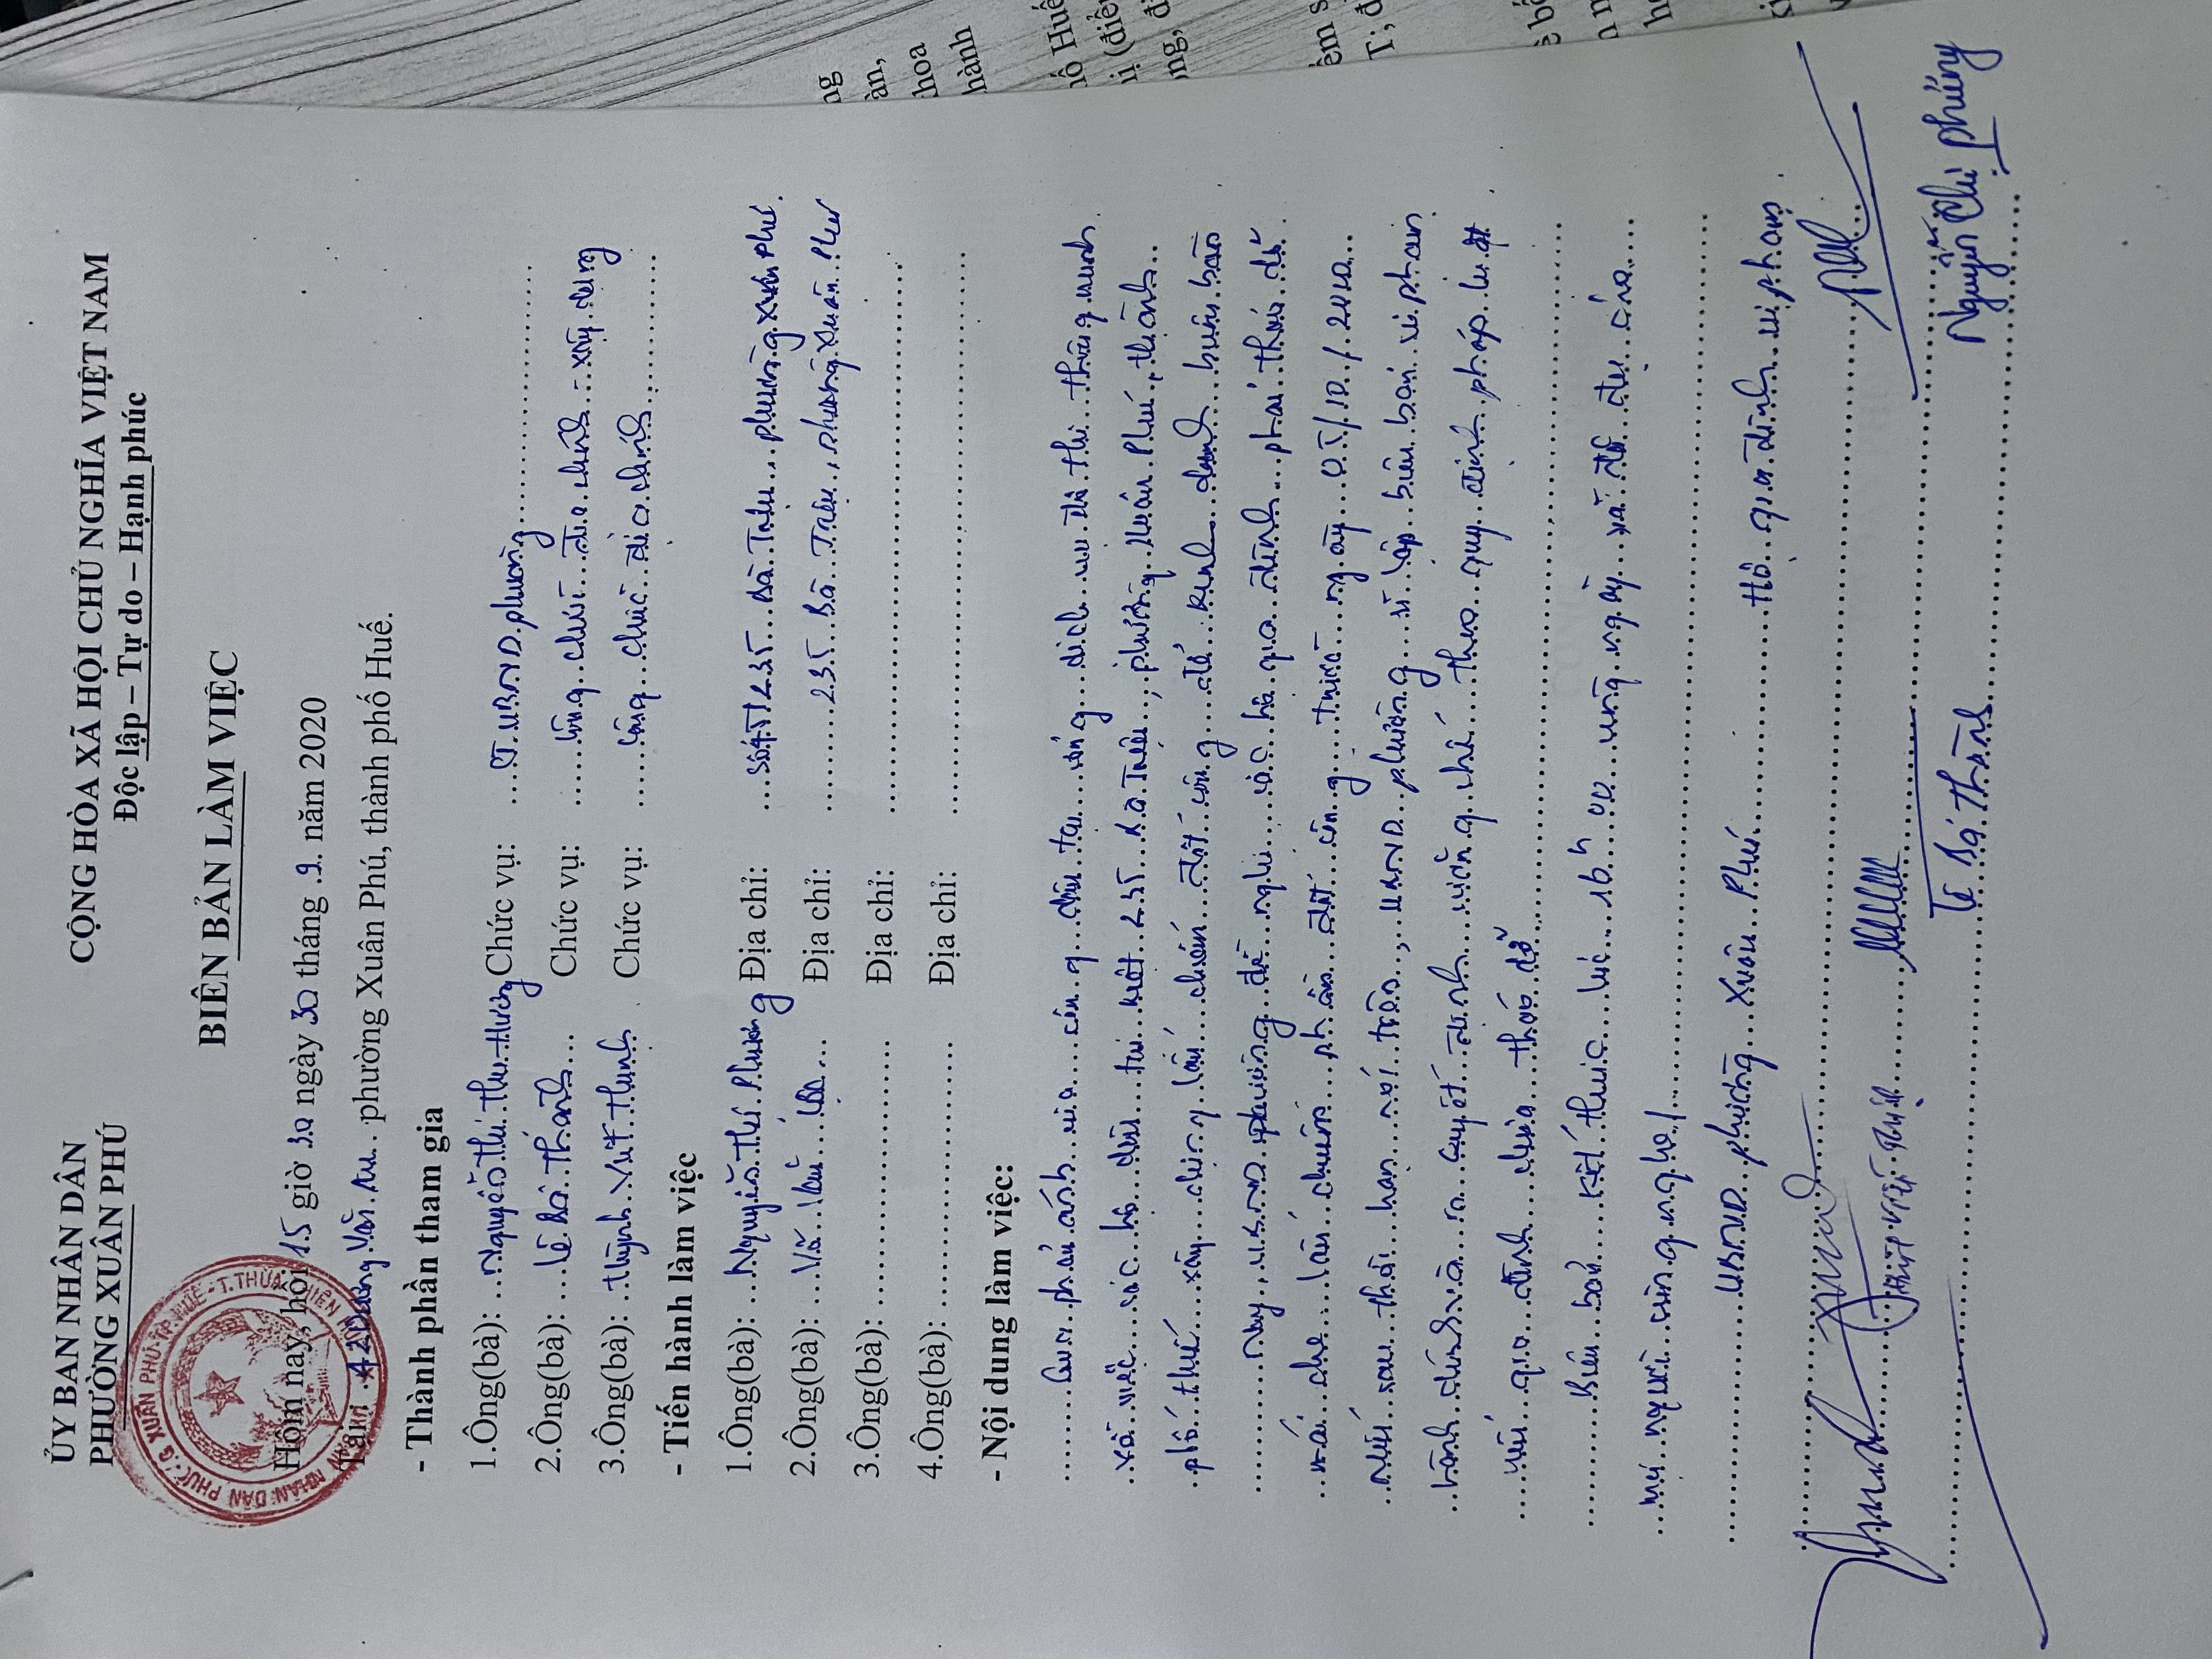 ỦY BAN NHÂN DÂN
PHƯỜNG XUÂN PHÚ
CỘNG HÒA XÃ HỘI CHỦ NGHĨA VIỆT NAM
Độc lập – Tự do – Hạnh phúc
BIÊN BẢN LÀM VIỆC
Hôm nay, hồi 15 giờ 30 ngày 30 tháng 9 năm 2020
Tại: 42 Dương Văn An phường Xuân Phú, thành phố Huế.
- Thành phần tham gia
1.Ông(bà): Nguyễn Thị Thu Hương Chức vụ: CT. UBND phường
2.Ông(bà): Lê Bá Thành Chức vụ: công chức địa chính - xây dựng
3.Ông(bà): Huỳnh Viết Thịnh Chức vụ: công chức địa chính
- Tiến hành làm việc
1.Ông(bà): Nguyễn Thị Phương Địa chỉ: 235 Bà Triệu, phường Xuân Phú.
2.Ông(bà): Địa chỉ: 235 Bà Triệu, phường Xuân Phú
3.Ông(bà): Địa chỉ:
4.Ông(bà): Địa chỉ:
- Nội dung làm việc:
Qua phản ánh của công dân tại cổng dịch vụ đô thị thông minh
về việc các hộ dân tại kiệt 235 Bà Triệu, phường Xuân Phú, thành
phố Huế xây dựng lấn chiếm đất công để kinh doanh buôn bán
Nay, UBND phường đề nghị các hộ gia đình phải tháo dỡ
mái che lấn chiếm phần đất công trước ngày 05/10/2020
Nếu sau thời hạn nói trên, UBND phường sẽ lập biên bản vi phạm
hành chính và ra quyết định cưỡng chế theo quy định pháp luật
nếu gia đình chưa tháo dỡ
Biên bản kết thúc lúc 16h00 cùng ngày và đã đọc cho
mọi người cùng nghe/
UBND phường Xuân Phú Hộ gia đình vi phạm
Huỳnh Viết Thịnh
Lê Bá Thành
Nguyễn Thị Phương